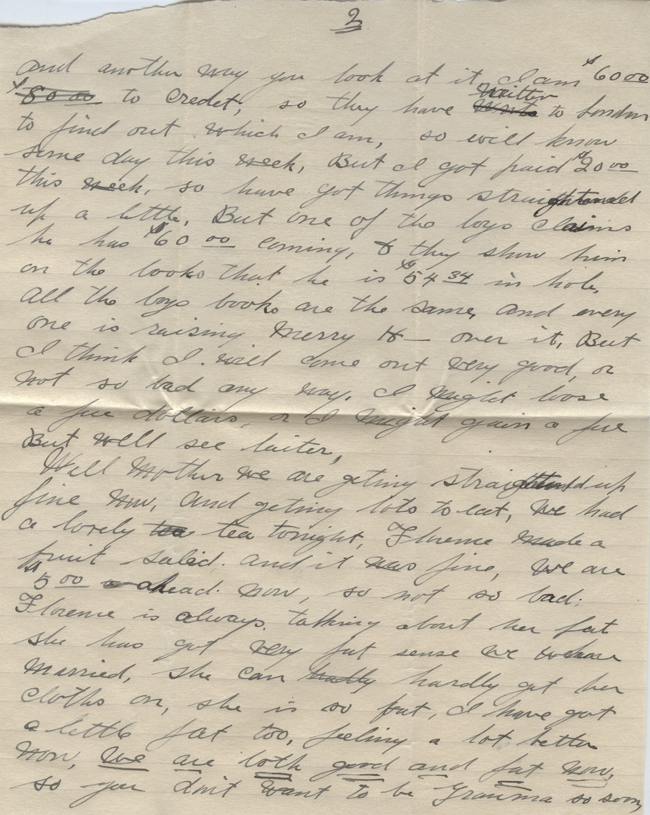 2
and another way you look at it I am $60 00
$80 00 to Credet, so they have written to London
to find out which I am, so will know
some day this week, But I got paid $20 00
this week, so have got things straightended
up a little, But one of the boys claims
he has $60 00 coming, & they show him
on the books that he is $54 34 in hole,
all the boys books are the same, and every
one is raising Merry H— over it, But
I think I will come out very good, or
not so bad any way, I might loose
a few dollars, or I might gain a few
But well see laiter,
Well Mother we are geting straightend up
fine now, and geting lots to eat, We had
a lovely tea tea tonight, Florence made a
fruit salid. and it was fine, We are
$5 00 ahead. now, so not so bad.
Florence is always talking about her fat
she has got very fat sense we were
married, she can hardly hardly get her
cloths on, she is so fat, I have got
a little fat too, feeling a lot better
now, we are both good and fat now,
so you don't want to be Grauma so soon,